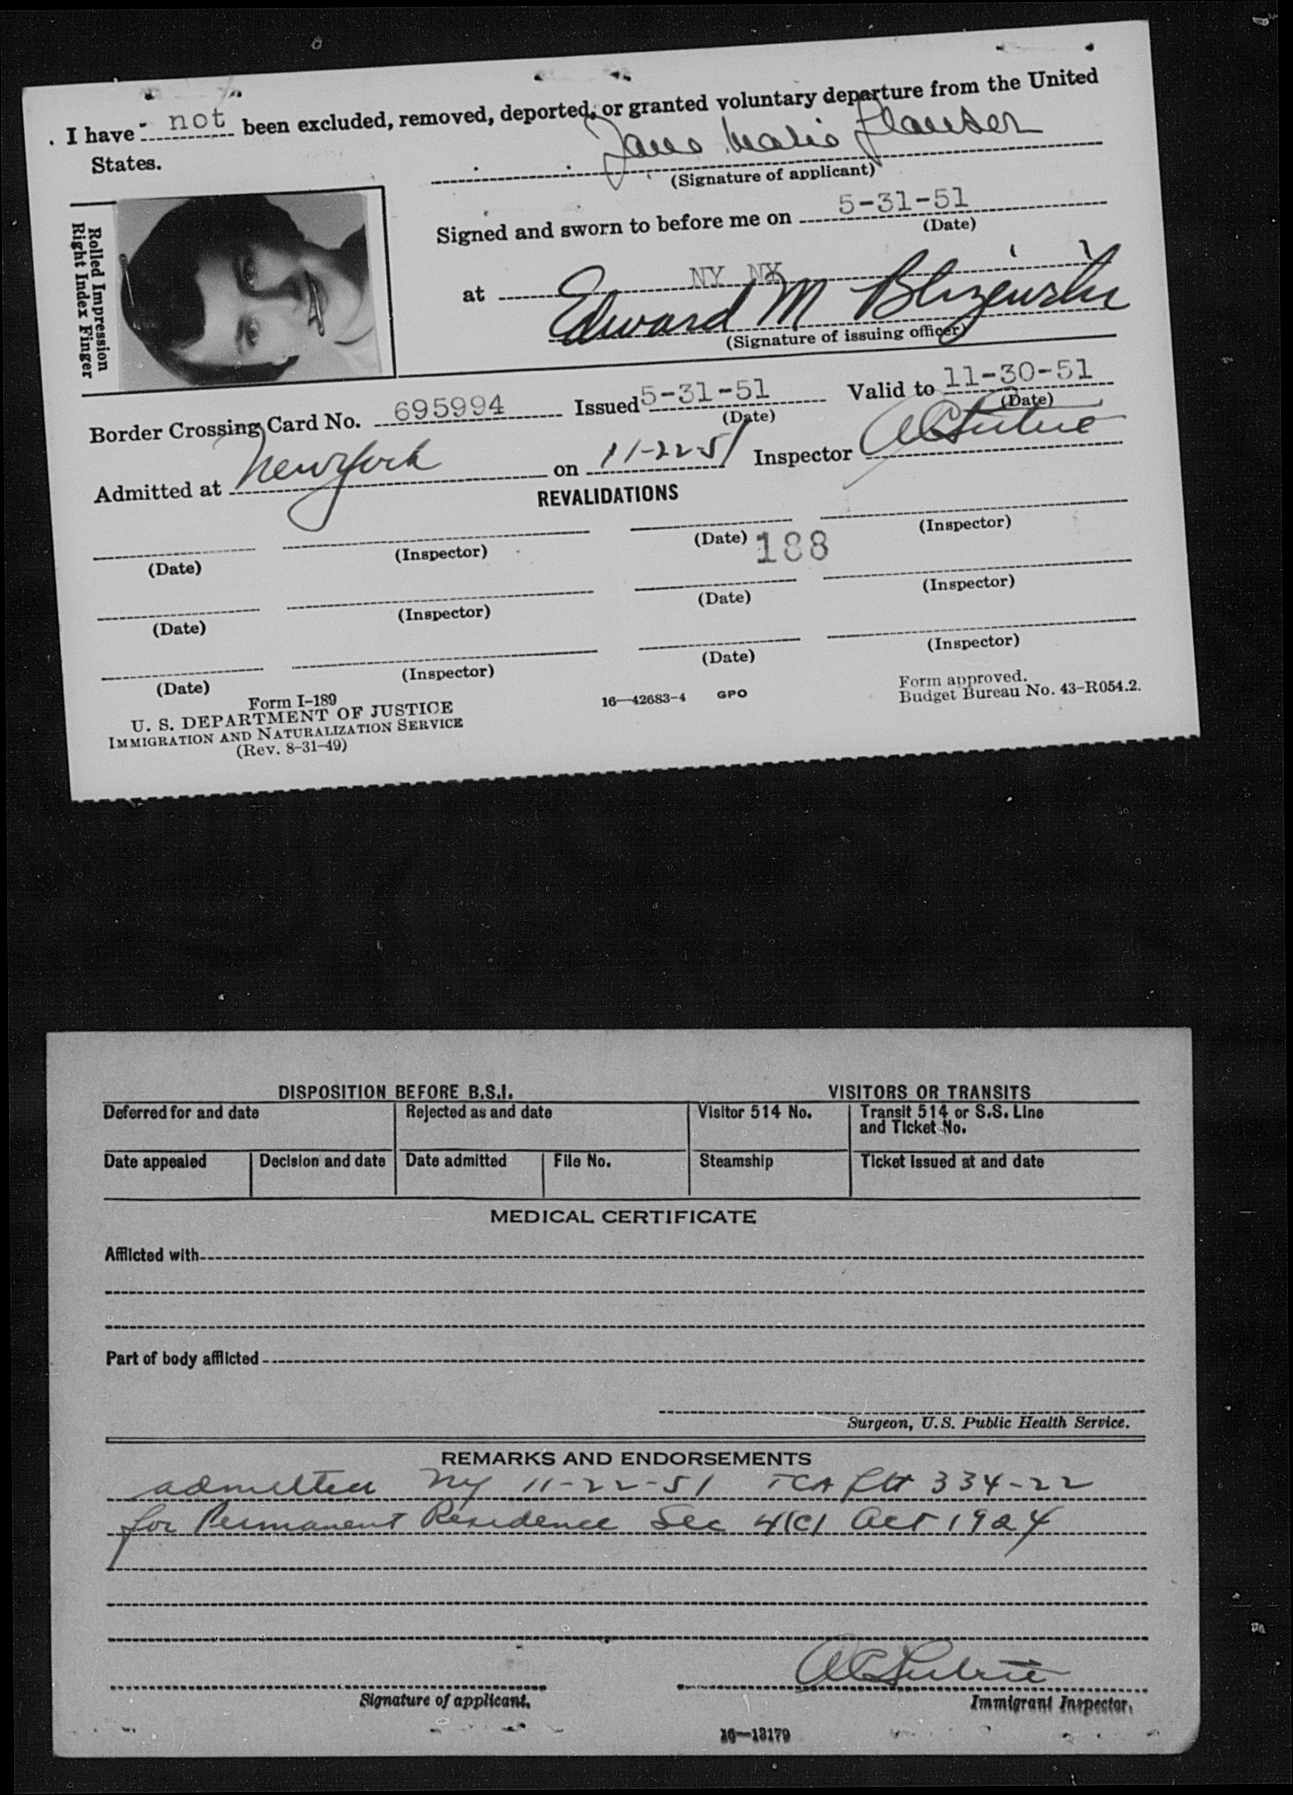 I have not been excluded, removed, deported, or granted voluntary departure from the United
States.
(Signature of applicant)
Rolled Impression
Right Index Finger
Signed and sworn to before me on 5-31-51
(Date)
at NY NY
Edward M
(Signature of issuing officer)
Border Crossing Card No. 695994 Issued 5-31-51 Valid to 11-30-51
(Date) (Date)
Admitted at New York on 11-22-51 Inspector
REVALIDATIONS
(Date) (Inspector) (Date) (Inspector)
188
(Date) (Inspector) (Date) (Inspector)
(Date) (Inspector) (Date) (Inspector)
Form I-189
U. S. DEPARTMENT OF JUSTICE
IMMIGRATION AND NATURALIZATION SERVICE
(Rev. 8-31-49)
16—42683-4 GPO
Form approved.
Budget Bureau No. 43-R054.2.
DISPOSITION BEFORE B.S.I. VISITORS OR TRANSITS
Deferred for and date Rejected as and date Visitor 514 No. Transit 514 or S.S. Line
and Ticket No.
Date appealed Decision and date Date admitted File No. Steamship Ticket issued at and date
MEDICAL CERTIFICATE
Afflicted with
Part of body afflicted
Surgeon, U.S. Public Health Service.
REMARKS AND ENDORSEMENTS
admitted NY 11-22-51 TCA Flt 334-22
for Permanent Residence Sec 4(c) Act 1924
Signature of applicant. Immigrant Inspector.
16—13179